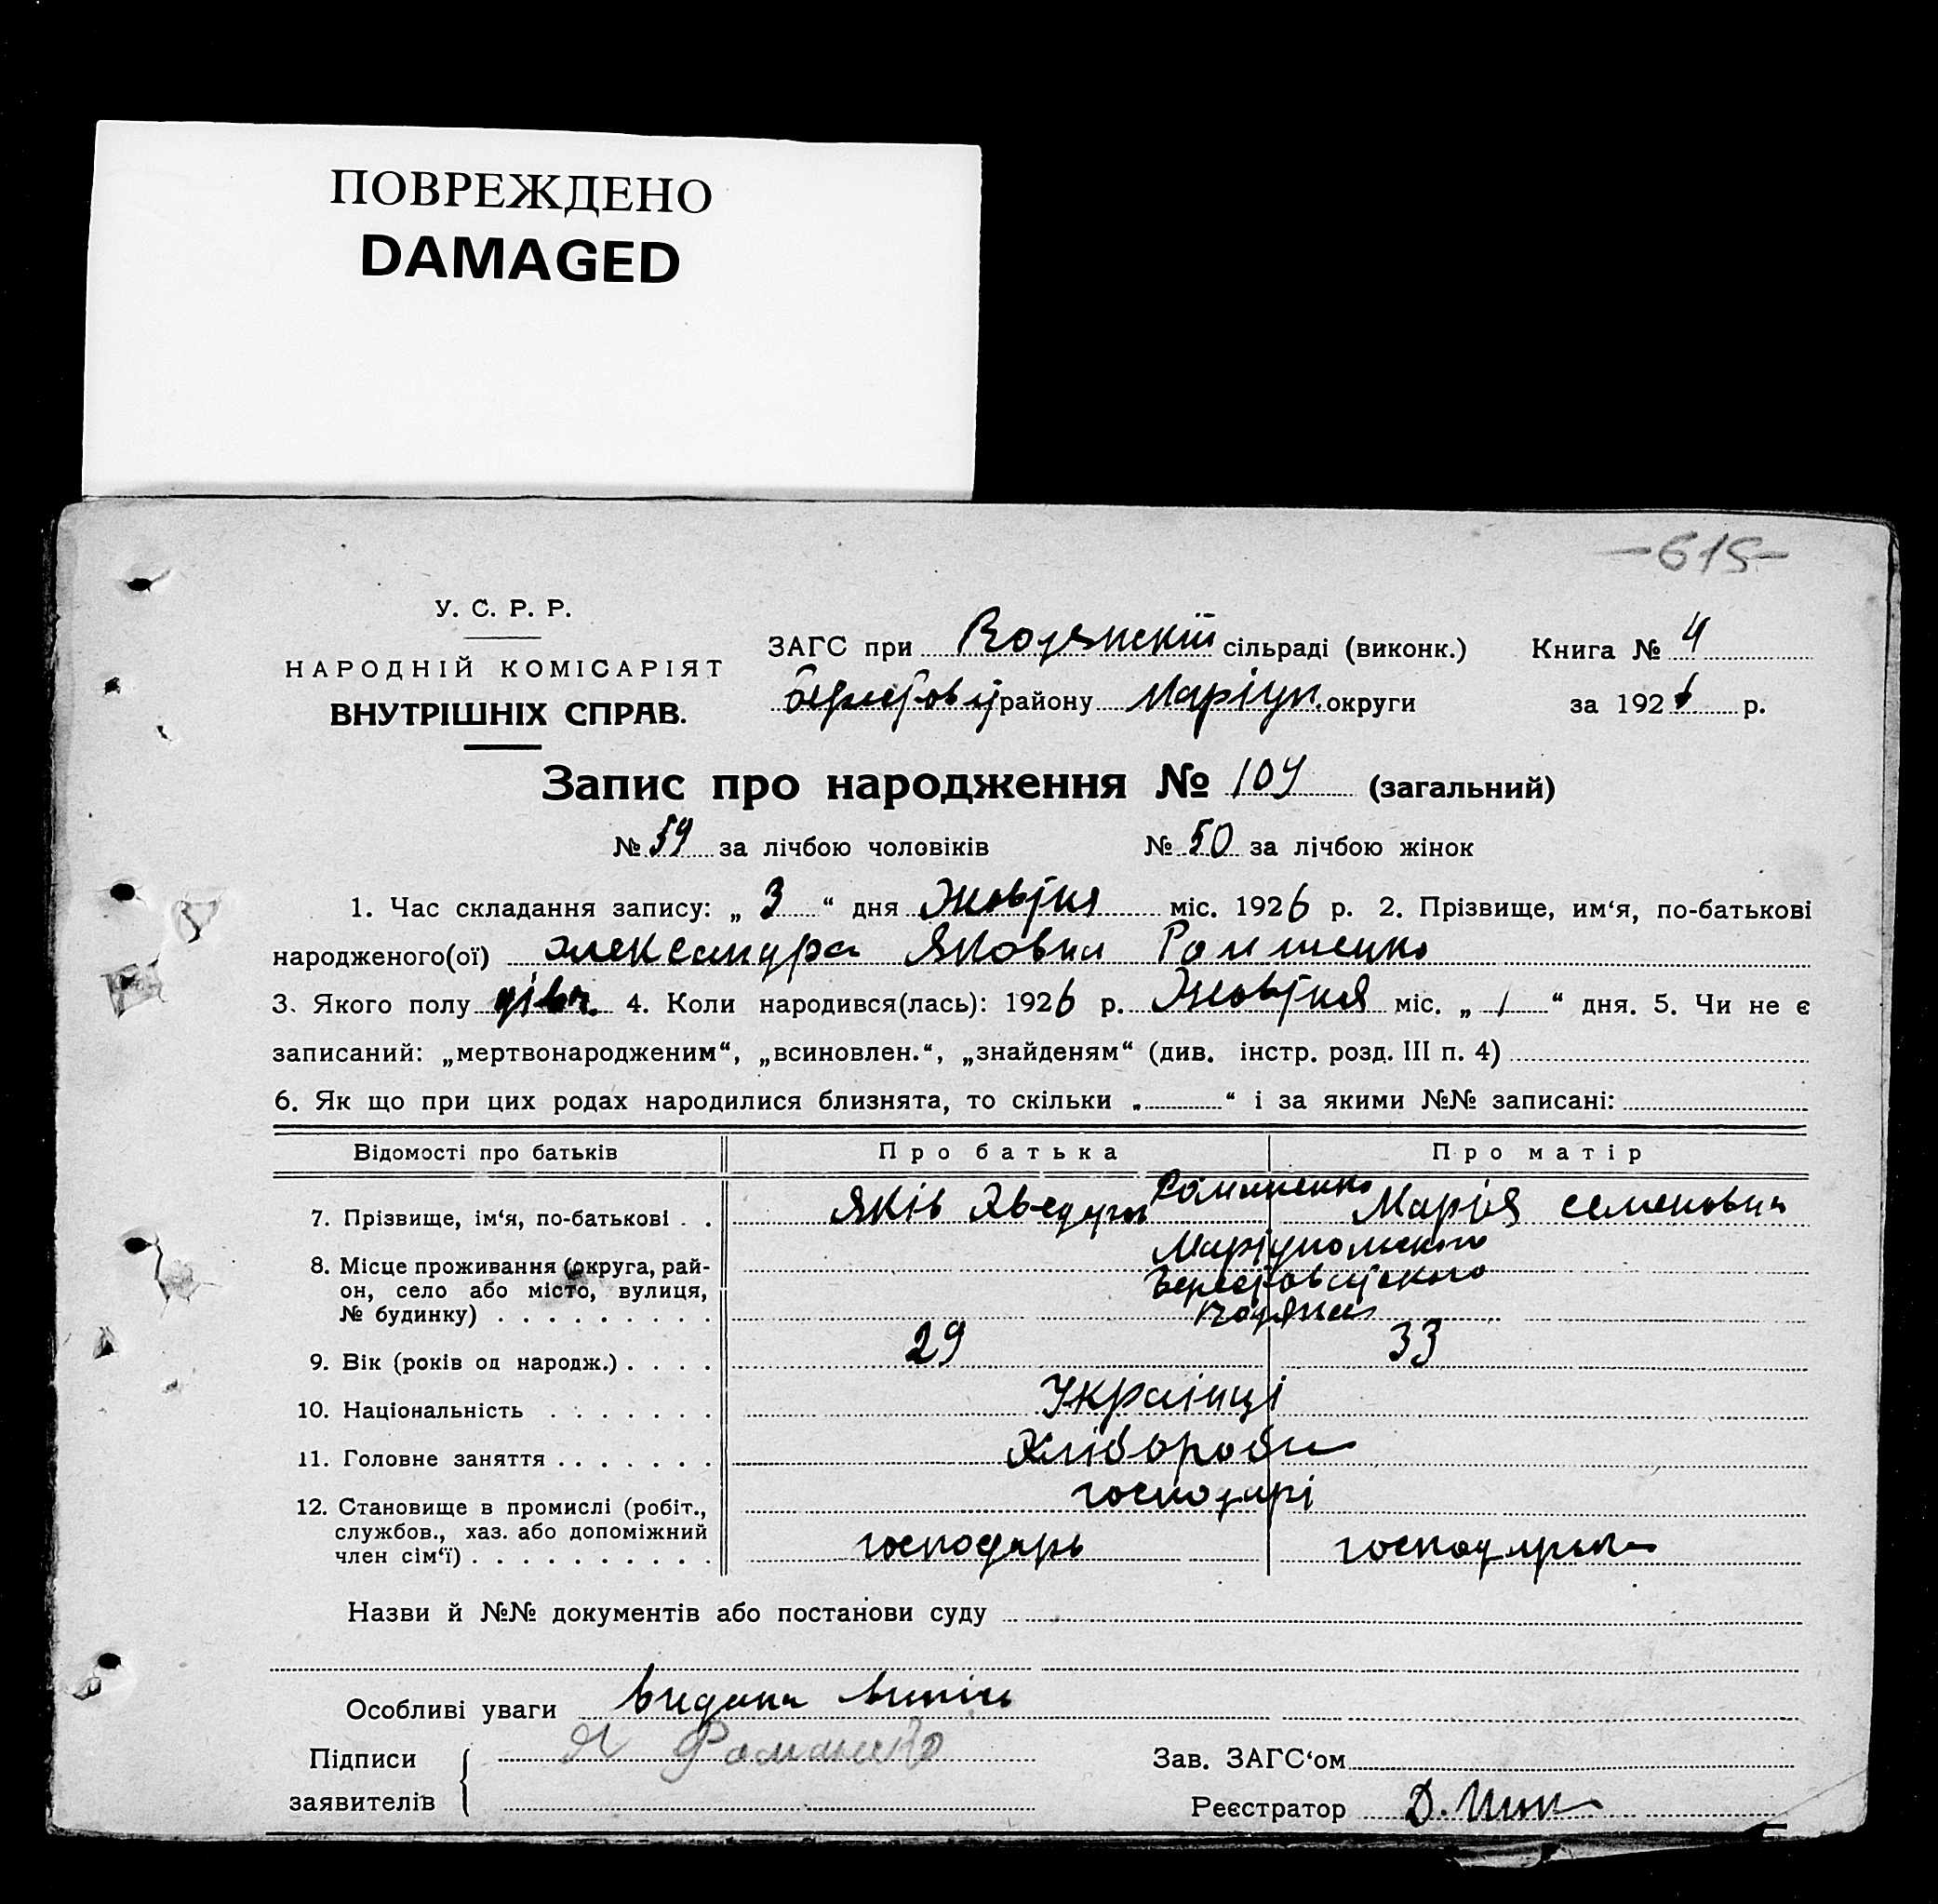 ПОВРЕЖДЕНО
DAMAGED
-615-
У. С. Р. Р.
НАРОДНІЙ КОМІСАРІЯТ
ВНУТРІШНІХ СПРАВ.
ЗАГС при Водянскій сільраді (виконк.) Книга № 4
району Маріуп. округи за 1926 р.
Запис про народження № 109 (загальний)
№ 59 за лічбою чоловіків № 50 за лічбою жінок
1. Час складання запису: „ 3 “ дня Жовтня міс. 1926 р. 2. Прізвище, им‘я, по-батькові
народженого(ої) Александра Яковна
3. Якого полу дівч. 4. Коли народився(лась): 1926 р. Жовтня міс. „ 1 “ дня. 5. Чи не є
записаний: „мертвонародженим“, „всиновлен.“, „знайденям“ (див. інстр. розд. III п. 4)
6. Як що при цих родах народилися близнята, то скільки „ “ і за якими №№ записані:
Відомості про батьків Про батька Про матір
7. Прізвище, ім‘я, по-батькові . . Яків Марія Семеновна
8. Місце проживання (округа, рай- Маріупольского
он, село або місто, вулиця,
№ будинку) . . . . . . . . . Водяна
9. Вік (років од народж.) . . . . 29 33
10. Національність . . . . . . . Украінці
11. Головне заняття . . . . . . . Хлібороби
12. Становище в промислі (робіт., господарі
службов., хаз. або допоміжний
член сім‘ї) . . . . . . . . . . господарь господарка
Назви й №№ документів або постанови суду
Особливі уваги Видана випись
Підписи Зав. ЗАГС‘ом
заявителів Реєстратор Д.